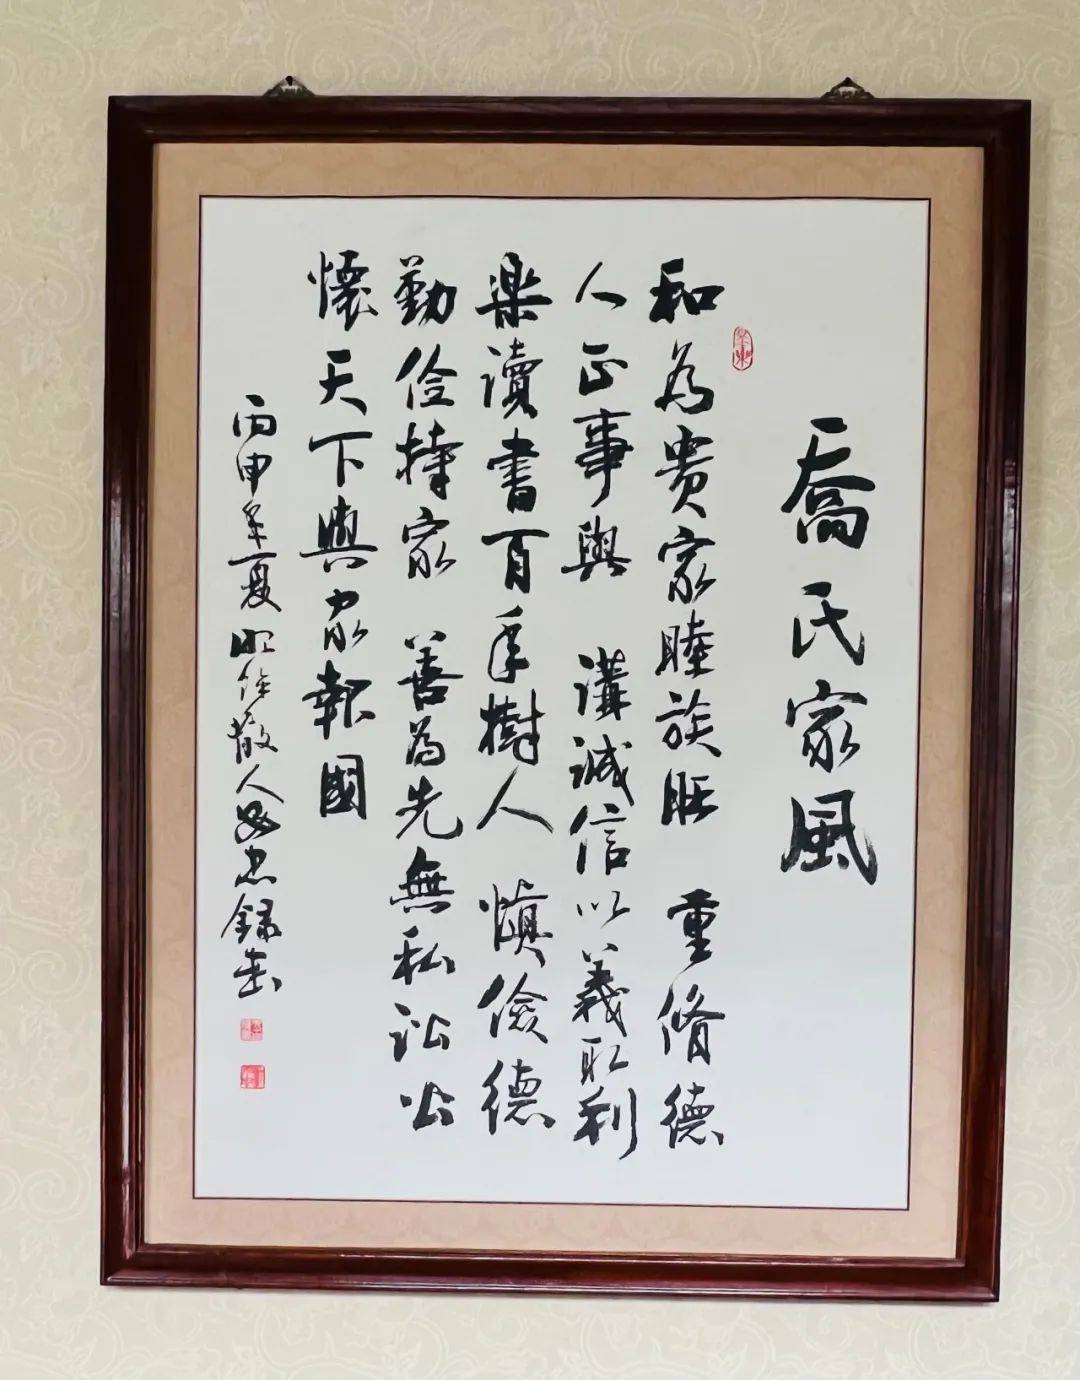 喬氏家風
和為贵家睦族旺 重脩德
人正事興 講誠信以義取利
楽讀書百年樹人 慎儉德
勤俭持家 善為先無私訟公
懷天下興家報國
丙申年夏昭馀散人忠録书